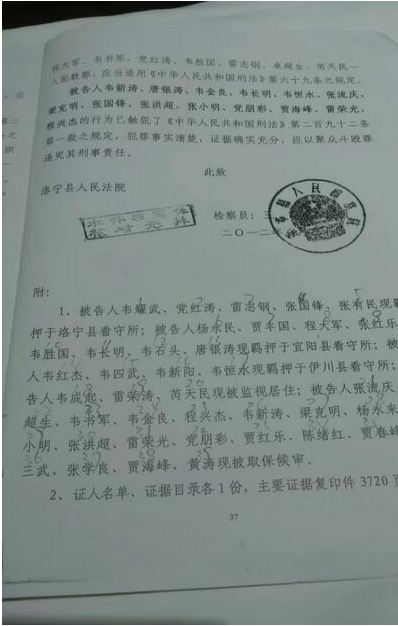 程大军、韦书军、党红涛、韦胜国、雷志钢、 超生、芮天民一
人犯数罪，应当适用《中华人民共和国刑法》第六十九条之规定。
被告人韦新涛、唐银涛、韦金良、韦长明、韦恒水、张流庆、
梁克明、张国锋、张洪超、张小明、党朋彩、贾海峰、雷荣光、
程兴杰的行为已触犯了《中华人民共和国刑法》第二百九十二条
第一款之规定，犯罪事实清楚，证据确实充分，应以聚众斗殴罪
追究其刑事责任。
此致
洛宁县人民法院
检察员：王
二〇一二年
附：
1、被告人韦耀武、党红涛、雷志钢、张国锋、张有民现羁
押于洛宁县看守所；被告人杨永民、贾丰国、程大军、张红乐
韦胜国、韦长明、韦石头、唐银涛现羁押于宜阳县看守所；被
人韦红杰、韦四武、韦新阳、韦恒水现羁押于伊川县看守所；
告人韦成起、雷荣涛、芮天民现被监视居住；被告人张流庆
超生、韦书军、韦金良、程兴杰、韦新涛、梁克明、杨永来
小明、张洪超、雷荣光、党朋彩、贾红乐、陈绪红、贾春峰
三武、张学良、贾海峰、黄涛现被取保候审。
2、证人名单、证据目录各1份，主要证据复印件3720页
37